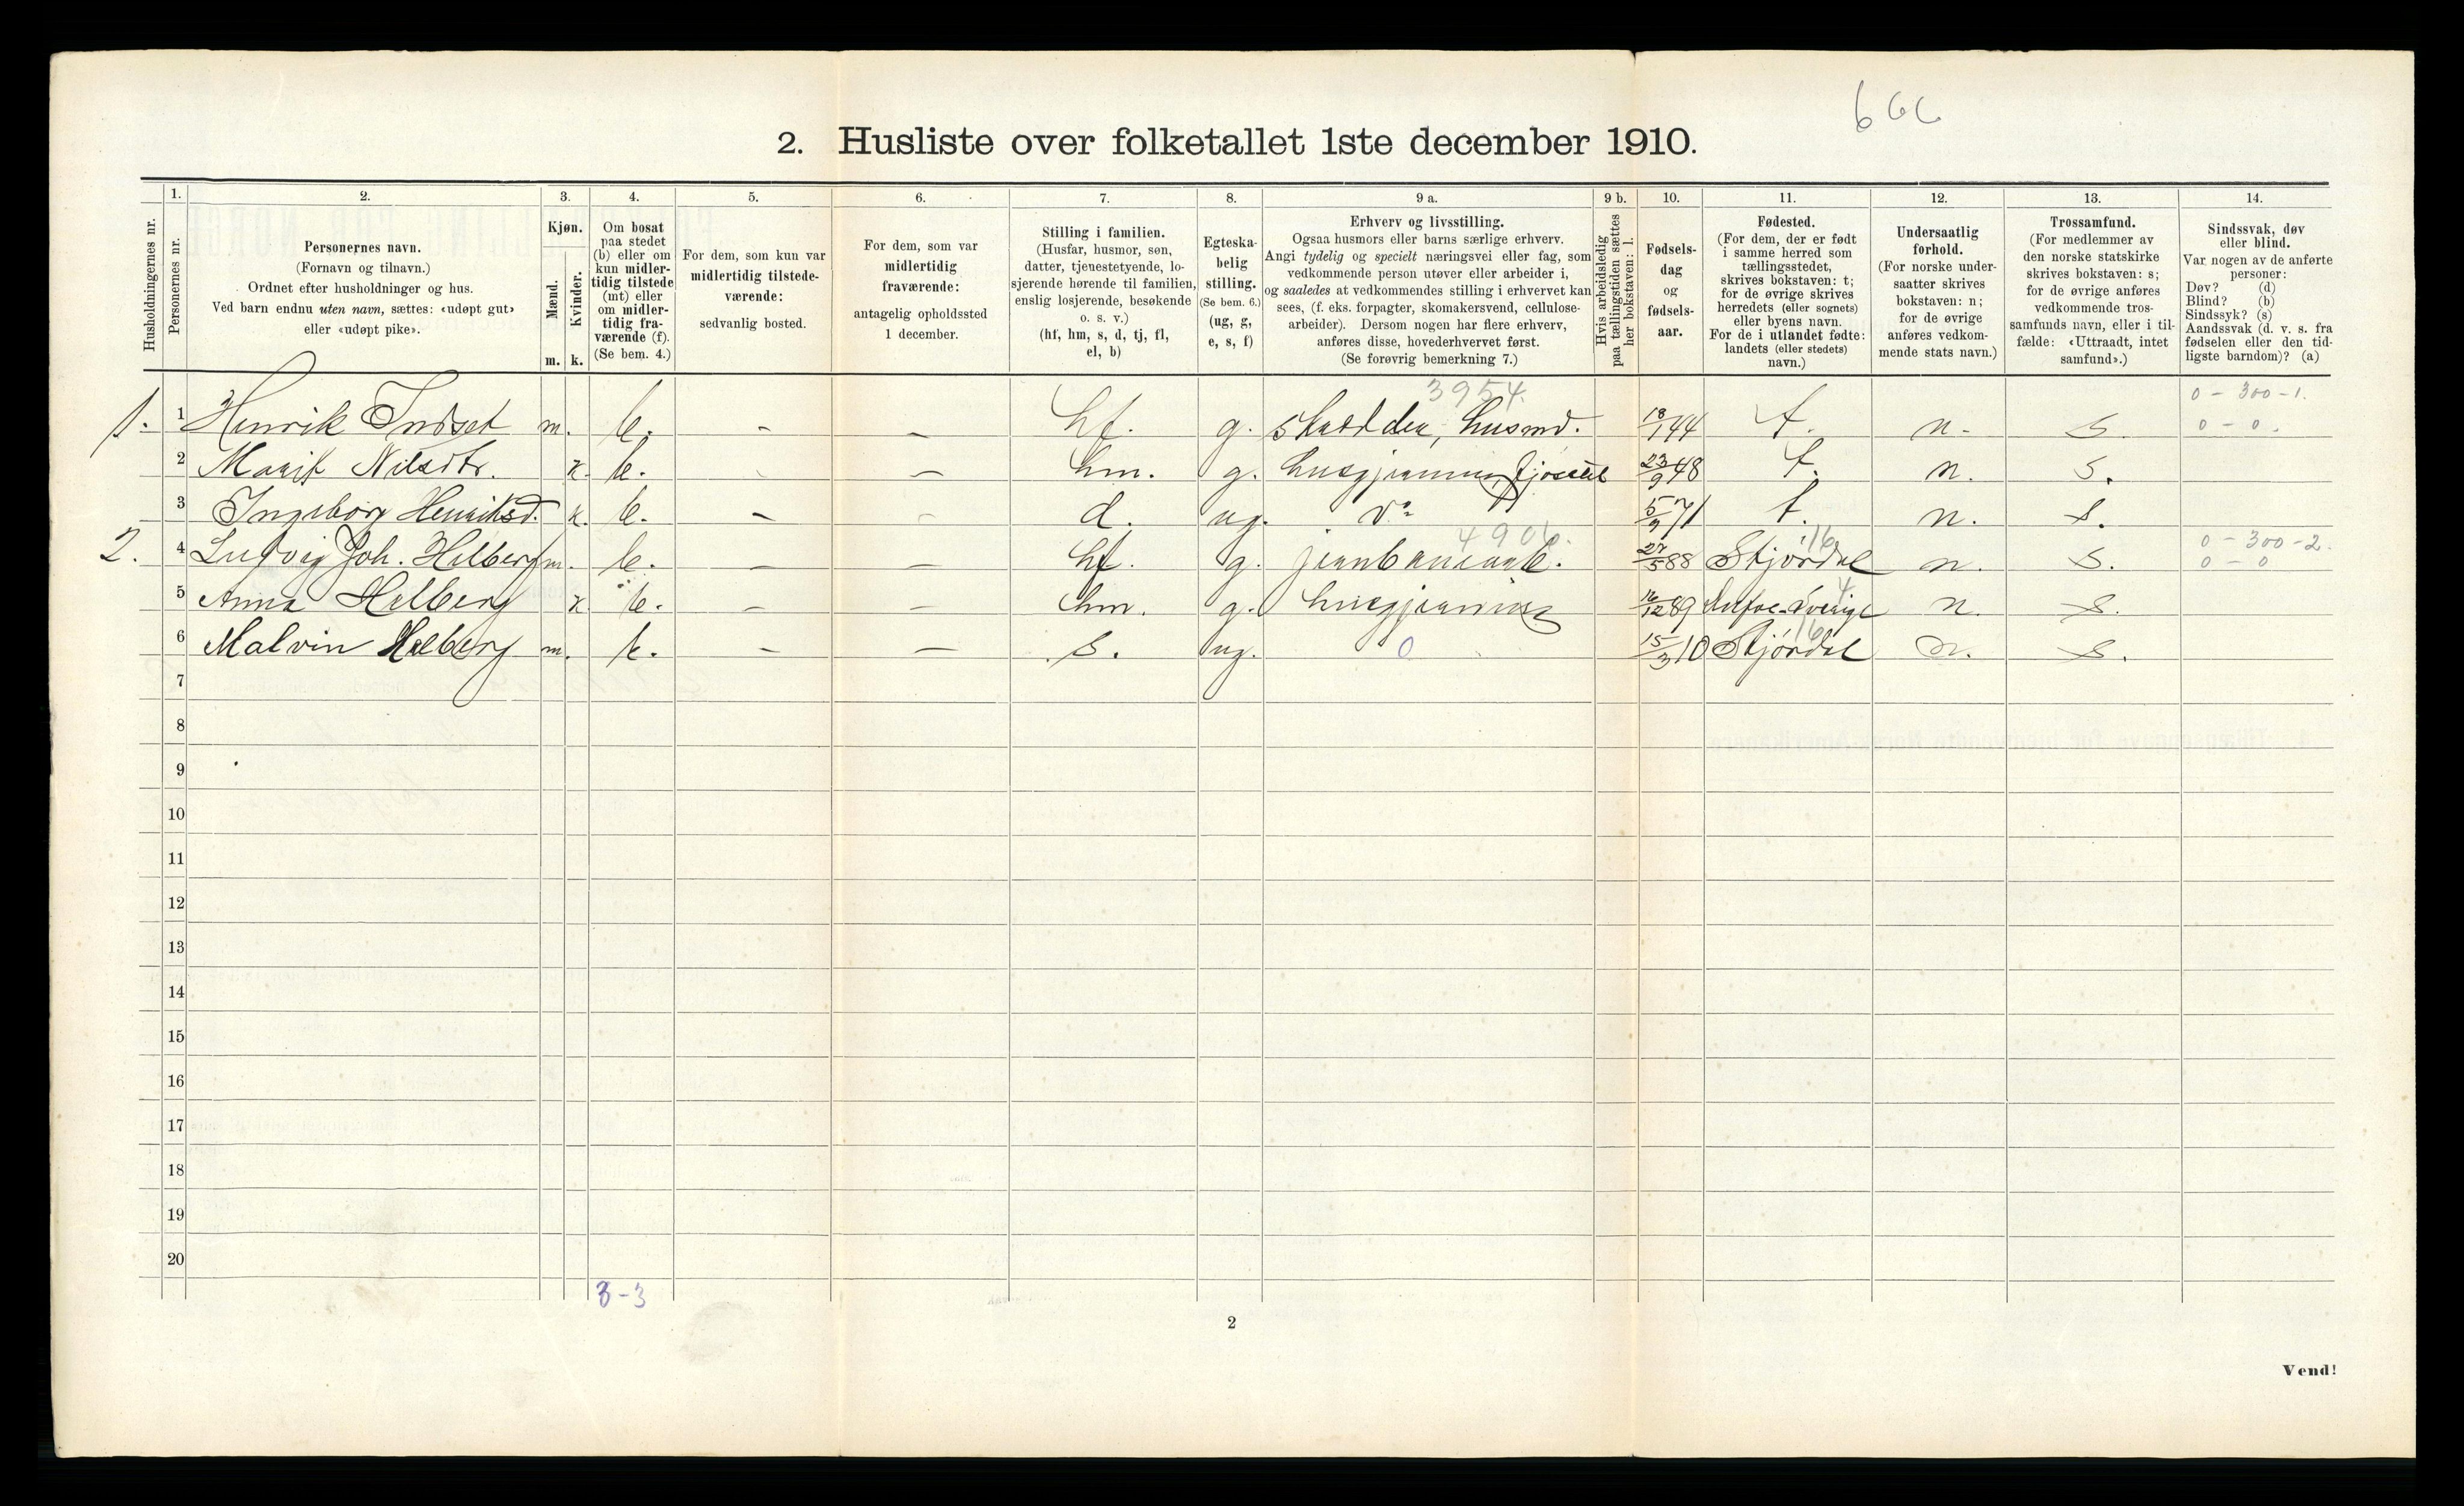 666
2. Husliste over folketallet 1ste december 1910.
1. 2. 3. 4. 5. 6. 7. 8. 9 a. 9 b. 10. 11. 12. 13. 14.
Husholdningernes nr.
Personernes nr.
Personernes navn.
(Fornavn og tilnavn.)
Ordnet efter husholdninger og hus.
Ved barn endnu uten navn, sættes: «udøpt gut»
eller «udøpt pike».
Kjøn.
Mænd.
Kvinder.
m. k.
Om bosat
paa stedet
(b) eller om
kun midler-
tidig tilstede
(mt) eller
om midler-
tidig fra-
værende (f).
(Se bem. 4.)
For dem, som kun var
midlertidig tilstede-
værende:
sedvanlig bosted.
For dem, som var
midlertidig
fraværende:
antagelig opholdssted
1 december.
Stilling i familien.
(Husfar, husmor, søn,
datter, tjenestetyende, lo-
sjerende hørende til familien,
enslig losjerende, besøkende
o. s. v.)
(hf, hm, s, d, tj, fl,
el, b)
Egteska-
belig
stilling.
(Se bem. 6.)
(ug, g,
e, s, f)
Erhverv og livsstilling.
Ogsaa husmors eller barns særlige erhverv.
Angi tydelig og specielt næringsvei eller fag, som
vedkommende person utøver eller arbeider i,
og saaledes at vedkommendes stilling i erhvervet kan
sees, (f. eks. forpagter, skomakersvend, cellulose-
arbeider). Dersom nogen har flere erhverv,
anføres disse, hovederhvervet først.
(Se forøvrig bemerkning 7.)
Hvis arbeidsledig
paa tællingstiden sættes
her bokstaven: l.
Fødsels-
dag
og
fødsels-
aar.
Fødested.
(For dem, der er født
i samme herred som
tællingsstedet,
skrives bokstaven: t;
for de øvrige skrives
herredets (eller sognets)
eller byens navn.
For de i utlandet fødte:
landets (eller stedets)
navn.)
Undersaatlig
forhold.
(For norske under-
saatter skrives
bokstaven: n;
for de øvrige
anføres vedkom-
mende stats navn.)
Trossamfund.
(For medlemmer av
den norske statskirke
skrives bokstaven: s;
for de øvrige anføres
vedkommende tros-
samfunds navn, eller i til-
fælde: «Uttraadt, intet
samfund».)
Sindssvak, døv
eller blind.
Var nogen av de anførte
personer:
Døv? (d)
Blind? (b)
Sindssyk? (s)
Aandssvak (d. v. s. fra
fødselen eller den tid-
ligste barndom)? (a)
3954. 0 - 300 - 1.
1. 1 Henrik Indset m. b. - - hf. g. skrædder, husmd. 18/1 44 t. n. s. 0 - 0.
2 Marit Nilsdtr. k. b. - - hm. g. husgjerning, fjøsstel 23/9 48 t. n. s.
3 Ingeborg Henriksd. k. b. - - d. ug. do 5/9 71 t. n. s.
4906. 16 0 - 300 - 2.
2. 4 Ludvig Joh. Helberg m. b. - - hf. g. jernbanearb. 27/5 88 Stjørdal n. s. 0 - 0
4
5 Anna Helberg k b. - - hm. g. husgjerning 16/12 89 Sverige n. s.
16
6 Malvin Helberg m. b. - - s. ug. 0 15/3 10 Stjørdal n. s.
7
8
9
10
11
12
13
14
15
16
17
18
19
20
3-3
2
Vend!